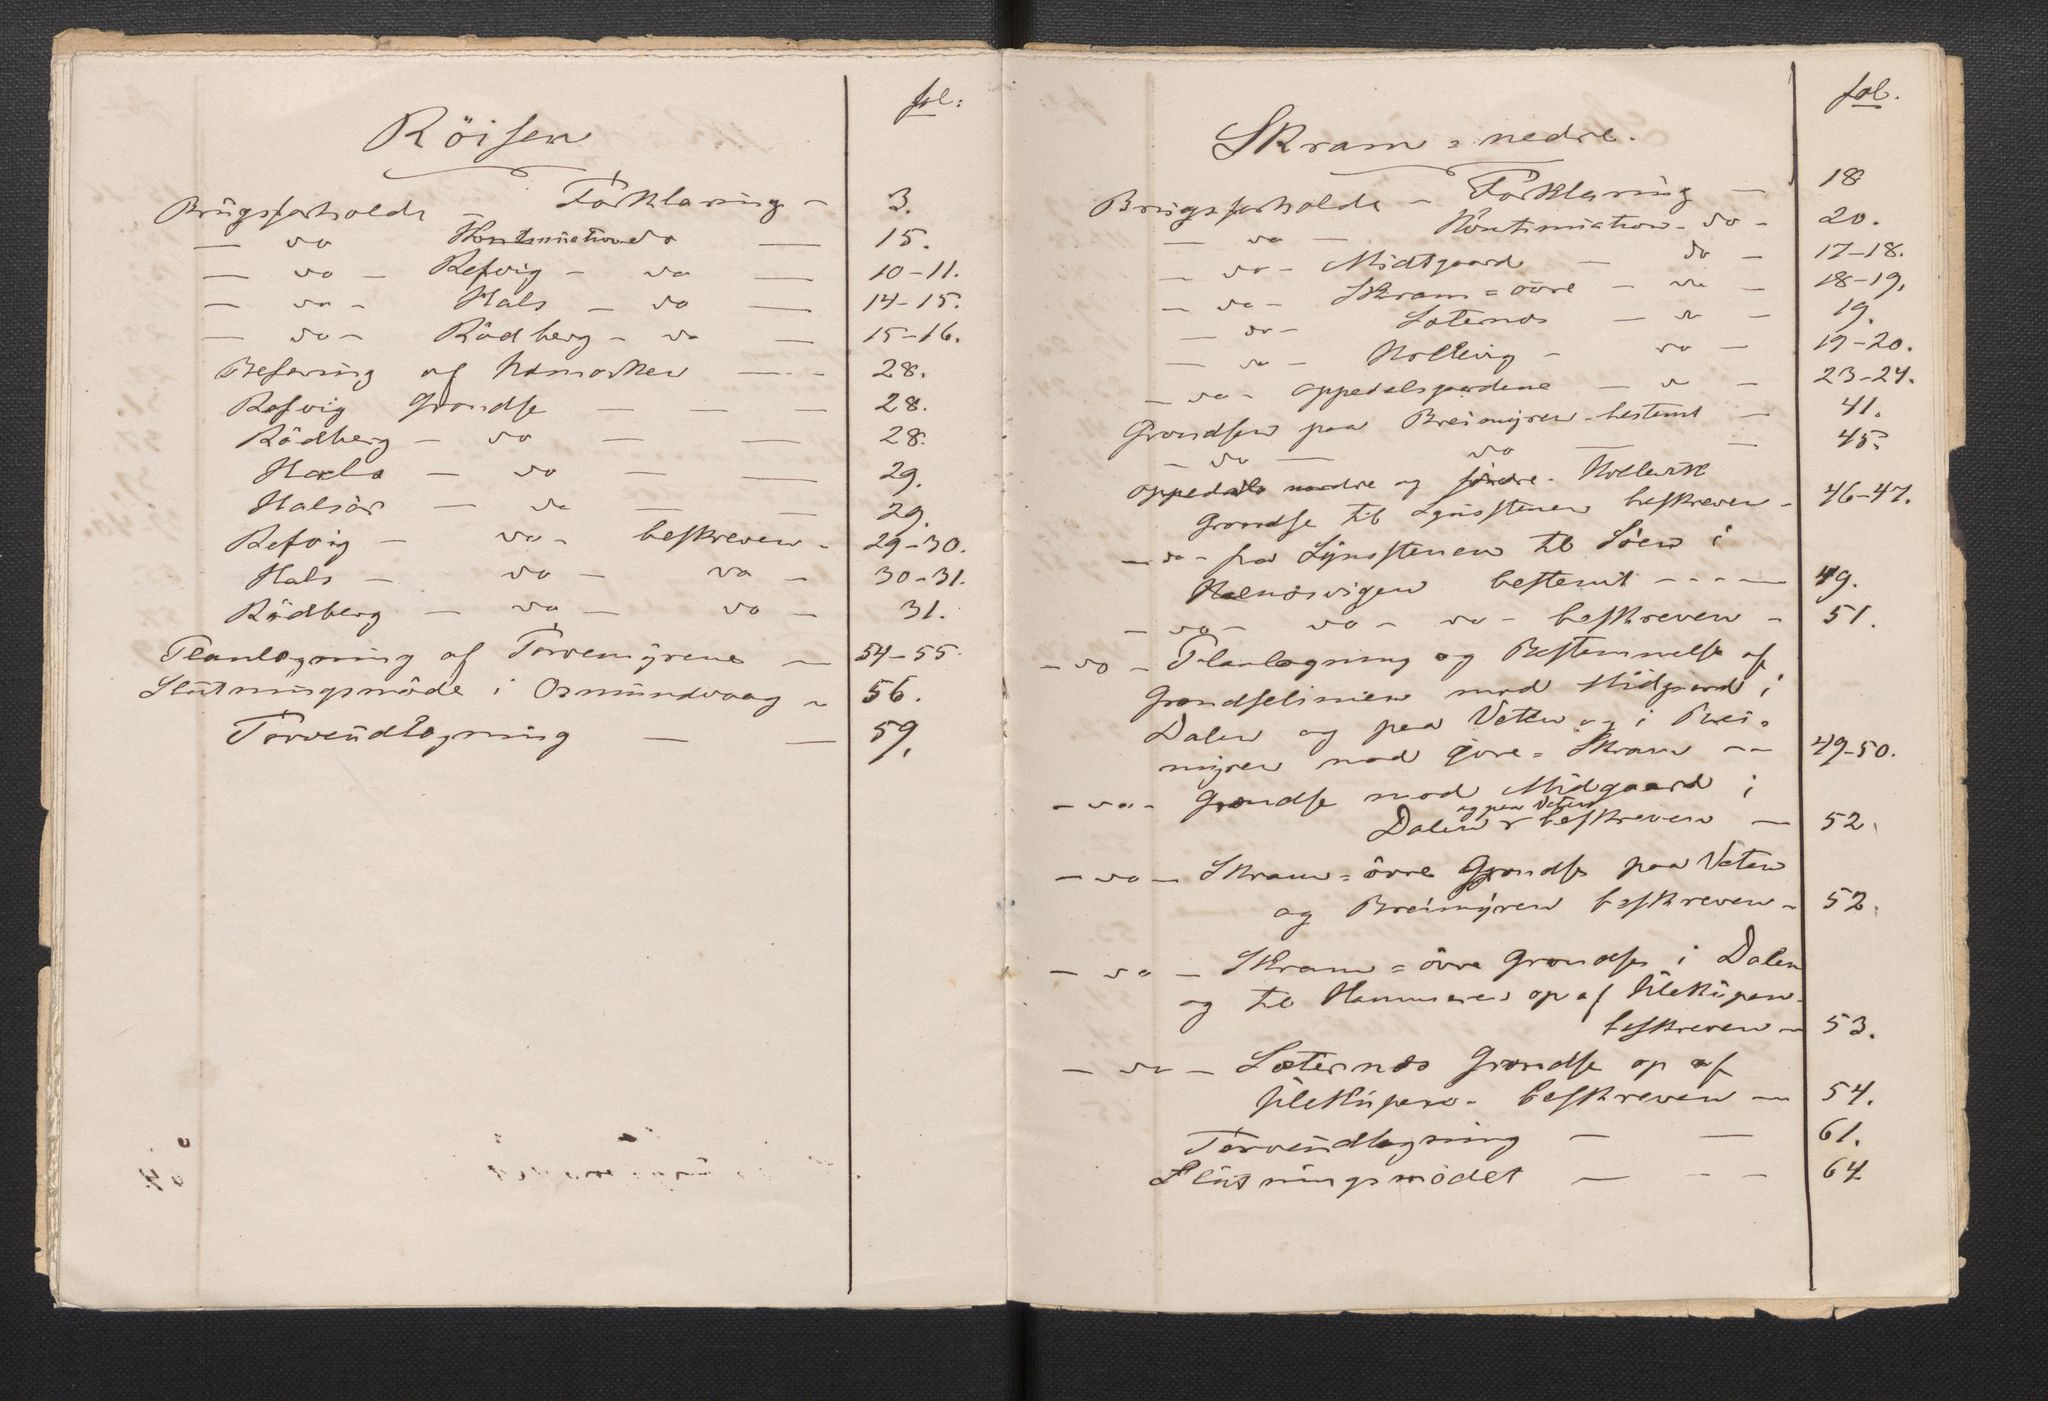 fol:
Röisen
Brugsforholds – Forklaring – 3.
— do Kontinuation do — 15.
— do – Refvig – do — 10–11.
— do – Hals – do — 14–15.
— do – Rödberg – do — 15–16.
Befaring af Udmarken — 28.
Refvig Grændse — — — 28.
Rödberg – do — — 28.
Hals — do — — 29.
Halsör — do — — 29.
Refvig – do – beskreven – 29–30.
Hals – do – do – 30–31.
Rödberg – do – do – 31.
Planlægning af Torvemyrene – 54–55.
Slutningsmöde i Osmundvaag – 56.
Torveudlægning — — 59.
fol.
Skram = nedre.
Brugsforholds – Forklaring – 18
– do – Kontinuation – do – 20.
– do – Midtgaard – do – 17–18.
– do – Skram = övre – do – 18–19.
— do – Sæternæs – do – 19.
– do – Holevig – do – 19–20.
– do – Oppedalsgaardene – do – 23–24.
Grændsen paa Breimyren – bestemt – 41.
– do — do — – 45.
Oppedals nordre og söndre – Holevik
Grændse til Lynstenen beskreven – 46–47.
– do – fra Lynstenen til Söen i
bestemt – – – — 49.
– do – do – do – beskreven – 51.
– do – Planlægning og Bestemmelse af
Grændselinien mod Midgaard i
Dalen og paa Veten og i Brei=
myren mod övre = Skram – – 49–50.
– do – Grændse mod Midgaard i
og paa Veten
Dalen beskreven — 52.
– do – Skram = övre Grændse paa Veten
og Breimyren beskreven – 52.
– do – Skram = övre Grændse i Dalen
og til Hammeren op af
beskreven – 53.
– do – Sæternæs Grændse op af
beskreven – 54.
Torveudlægning — — 61.
Slutningsmödet — – – 64.